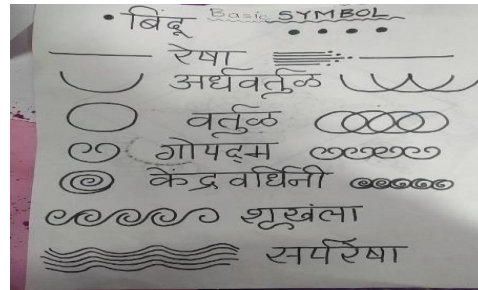 बिंदू Basic SYMBOL
रेषा
अर्धवर्तुळ
वर्तुळ
गोपद्म
केंद्रवर्धिनी
शृखंला
सर्परेषा